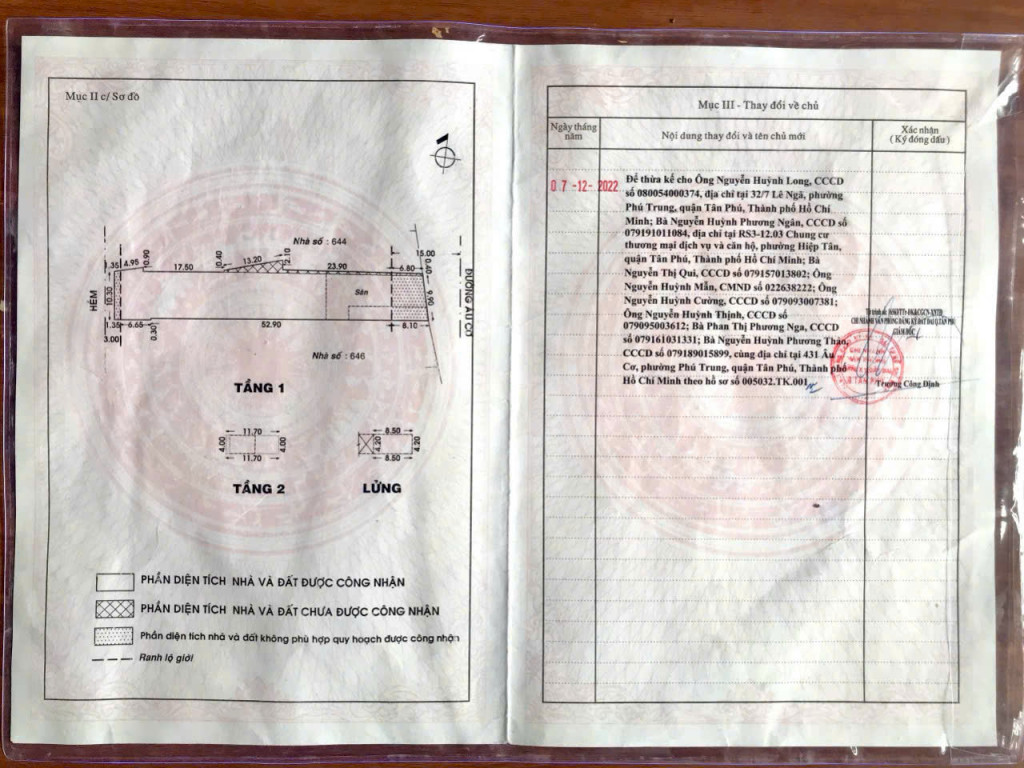 Mục II c/ Sơ đồ
Nhà số : 644
15.00
1.35
4.95
0.90
17.50
0.40
13.20
2.10
23.90
6.80
0.40
HẺM
10.30
Sân
9.90
ĐƯỜNG ÂU CƠ
1.35
6.65
0.30
52.90
8.10
3.00
Nhà số : 646
TẦNG 1
11.70
4.00
4.00
11.70
8.50
4.20
4.20
8.50
TẦNG 2
LỬNG
PHẦN DIỆN TÍCH NHÀ VÀ ĐẤT ĐƯỢC CÔNG NHẬN
PHẦN DIỆN TÍCH NHÀ VÀ ĐẤT CHƯA ĐƯỢC CÔNG NHẬN
Phần diện tích nhà và đất không phù hợp quy hoạch được công nhận
Ranh lộ giới
Mục III - Thay đổi về chủ
Ngày tháng năm
Nội dung thay đổi và tên chủ mới
Xác nhận
( Ký đóng dấu )
07-12-2022
Để thừa kế cho Ông Nguyễn Huỳnh Long, CCCD
số 080054000374, địa chỉ tại 32/7 Lê Ngã, phường
Phú Trung, quận Tân Phú, Thành phố Hồ Chí
Minh; Bà Nguyễn Huỳnh Phương Ngân, CCCD số
079191011084, địa chỉ tại RS3-12.03 Chung cư
thương mại dịch vụ và căn hộ, phường Hiệp Tân,
quận Tân Phú, Thành phố Hồ Chí Minh; Bà
Nguyễn Thị Qui, CCCD số 079157013802; Ông
Nguyễn Huỳnh Mẫn, CMND số 022638222; Ông
Nguyễn Huỳnh Cường, CCCD số 079093007381;
Ông Nguyễn Huỳnh Thịnh, CCCD số
079095003612; Bà Phan Thị Phương Nga, CCCD
số 079161031331; Bà Nguyễn Huỳnh Phương Thảo,
CCCD số 079189015899, cùng địa chỉ tại 431 Âu
Cơ, phường Phú Trung, quận Tân Phú, Thành phố
Hồ Chí Minh theo hồ sơ số 005032.TK.001
CHI NHÁNH VĂN PHÒNG ĐĂNG KÝ ĐẤT ĐAI Q.TÂN PHÚ
GIÁM ĐỐC
Trương Công Định